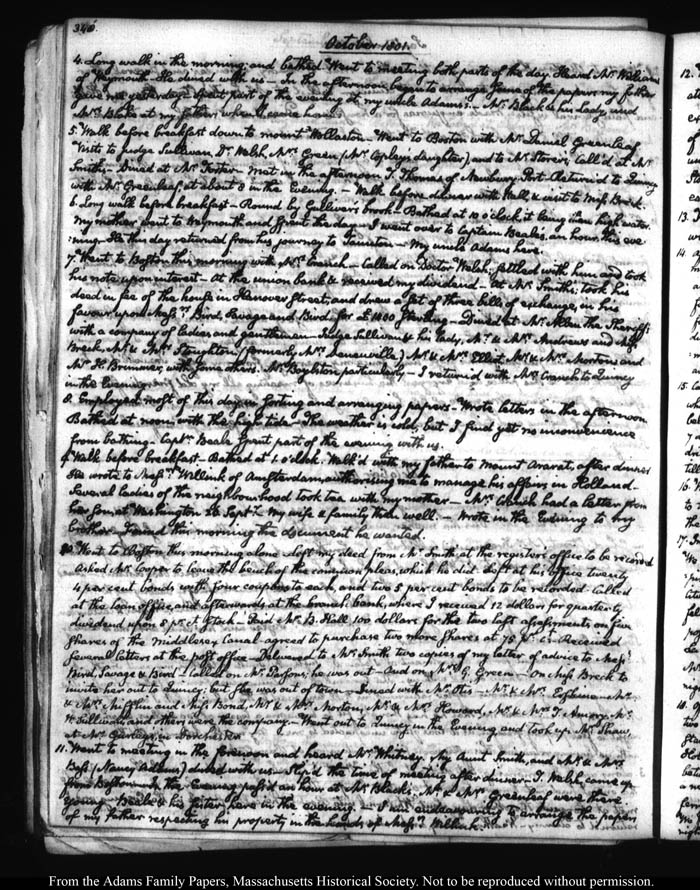 340.
October 1801.
4. Long walk in the morning; and bathed. Went to meeting both parts of the day. Heard Mr. Williams
of Weymouth. He dined with us — In the afternoon began to arrange some of the papers my father
gave me yesterday. Spent part of the evening at my uncle Adams's. — Mr. Black & his Lady and
Mrs. Blake at my father's when I came home.
5. Walk before breakfast down to mount Wollaston. Went to Boston with Mr. Daniel Greenleaf
Visits to Judge Sullivan, Dr. Welsh, Mrs. Green (Mr. Copley's daughter), and to Mr. Storer's; Call'd at Mr.
Smith's — Dined at Mr. Foster's — Met in the afternoon J. Thomas of Newbury-Port. Return'd to Quincy
with Mr. Greenleaf, at about 8 in the Evening. — Walk before dinner with Hall, & visit to Miss Breck.
6. Long walk before breakfast — Round by Gulliver's brook — Bathed at 10 o'clock it being then high water.
My mother went to Weymouth and spent the day — I went over to Captain Beale's, an hour this eve-
:ning. He this day returned from his journey to Taunton — My uncle Adams here.
7. Went to Boston this morning with Mr. Cranch — Called on Doctor Welsh; settled with him and took
his note upon interest — At the union bank & received my dividend — At Mr. Smith's; took his
deed in fee of the house in Hanover Street, and drew a set of three bills of exchange, in his
favour upon Messrs. Bird, Savage and Bird; for £1000 Sterling — Dined at Mr. Allen the Sheriff's
with a company of ladies and gentlemen — Judge Sullivan & his lady, Mr. & Mrs. Andrews and Miss
Breck, Mr. & Mrs. Stoughton (formerly Mrs.) Mr. & Mrs. Elliot, Mr. & Mrs. Mortons and
Mr. H. Brimmer, with some others. Mr. Boylston particularly — I returned with Mr. Cranch to Quincy
in the Evening.
8. Employed most of this day in sorting and arranging papers — Wrote letters in the afternoon
Bathed at noon, with the high tide — The weather is cold; but I find yet no inconvenience
from bathing — Captn. Beale spent part of the evening with us.
9. Walk before breakfast — Bathed at 1. o'clock. Walk'd with my father to Mount Ararat, after dinner
He wrote to Messrs. Willink of Amsterdam, authorising me to manage his affairs in Holland.
Several ladies of the neighbourhood took tea with my mother — Mr. Cranch had a letter from
her son, at Washington 28 Septr. My wife & family then well. — Wrote in the Evening to my
brother — Found this morning the document he wanted.
10. Went to Boston this morning alone. Left my deed from Mr. Smith, at the register's office to be recorded
Asked Mr. Cooper to leave the bench of the common pleas, which he did. Left at his office twenty
4 per cent bonds with four coupons to each, and two 5 per cent bonds to be recorded. Called
at the loan office, and afterwards at the branch bank, where I received 12 dollars for quarterly
dividend upon 8 pr. Ct. Stock — Paid Mr. B. Hall 100 dollars for the two last assessments on five
shares of the Middlesex Canal agreed to purchase two more shares at 75 — Received
several letters at the post office — Delivered to Mr. Smith two copies of my letter of advice to Messrs.
Bird, Savage & Bird — Called on Mr. Parsons; he was out — And on Mrs. G. Green — On Miss Breck to
invite her out to Quincy; but she was out of town — Dined with Mr. Otis — Mr. & Mrs. Erskine — Mr.
& Mrs. Mifflin and Miss Bond, Mr. & Mrs. Morton, Mr. & Mrs. Howard, Mr. & Mrs. T. Amory, Mr.
W. Sullivan, and others were the company. — Went out to Quincy in the Evening and took up Mr. Shaw,
at Mr. in Dorchester.
11. Went to meeting in the forenoon and heard Mr. Whitney. My Aunt Smith, and Mr. & Mrs.
Bass (Nancy Adams) dined with us — Slep'd the time of meeting after dinner — T. Welsh, came up
from Boston with the Evening pass'd an hour at Mr. Black's, Mr. & Mrs. Greenleaf were there
Young Beale & his sister, here in the evening. — I am endeavouring to arrange the papers
of my father respecting his property in the hands of Messrs. Willink.
From the Adams Family Papers, Massachusetts Historical Society. Not to be reproduced without permission.